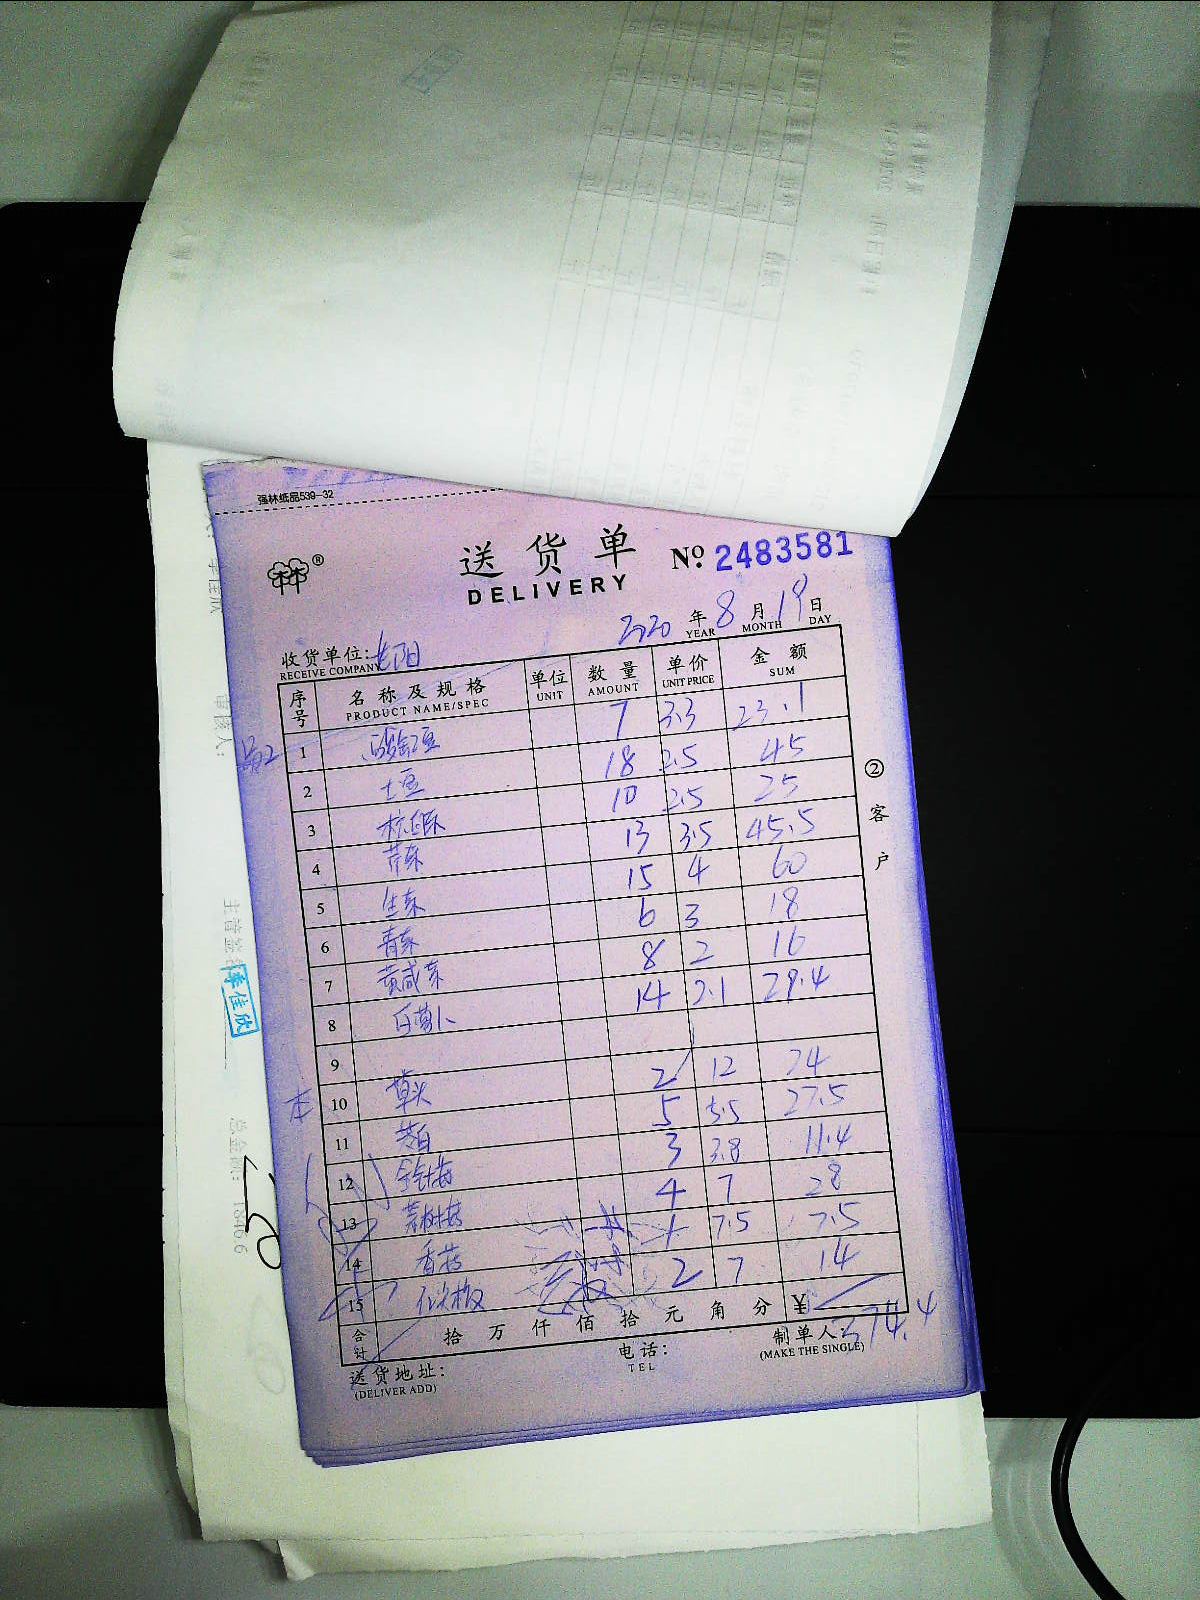 强林纸品539-32
送货单 No 2483581
DELIVERY
2020 年 8 月 19 日
YEAR MONTH DAY
收货单位:
RECEIVE COMPANY
序号 名称及规格 单位 数量 单价 金额
PRODUCT NAME/SPEC UNIT AMOUNT UNIT PRICE SUM
1 7 3.3 23.1
2 土豆 18 2.5 45
3 10 2.5 25
4 芹菜 13 3.5 45.5
5 生菜 15 4 60
6 青菜 6 3 18
7 黄咸菜 8 2 16
8 白萝卜 14 2.1 29.4
9
10 草头 2 12 24
11 茭白 5 5.5 27.5
12 金针菇 3 3.8 11.4
13 茶树菇 4 7 28
14 香菇 1 7.5 7.5
15 2 7 14
合计 拾 万 仟 佰 拾 元 角 分 ¥ 374.4
送货地址: 电话: 制单人:
(DELIVER ADD) TEL (MAKE THE SINGLE)
②客户
李佳欣